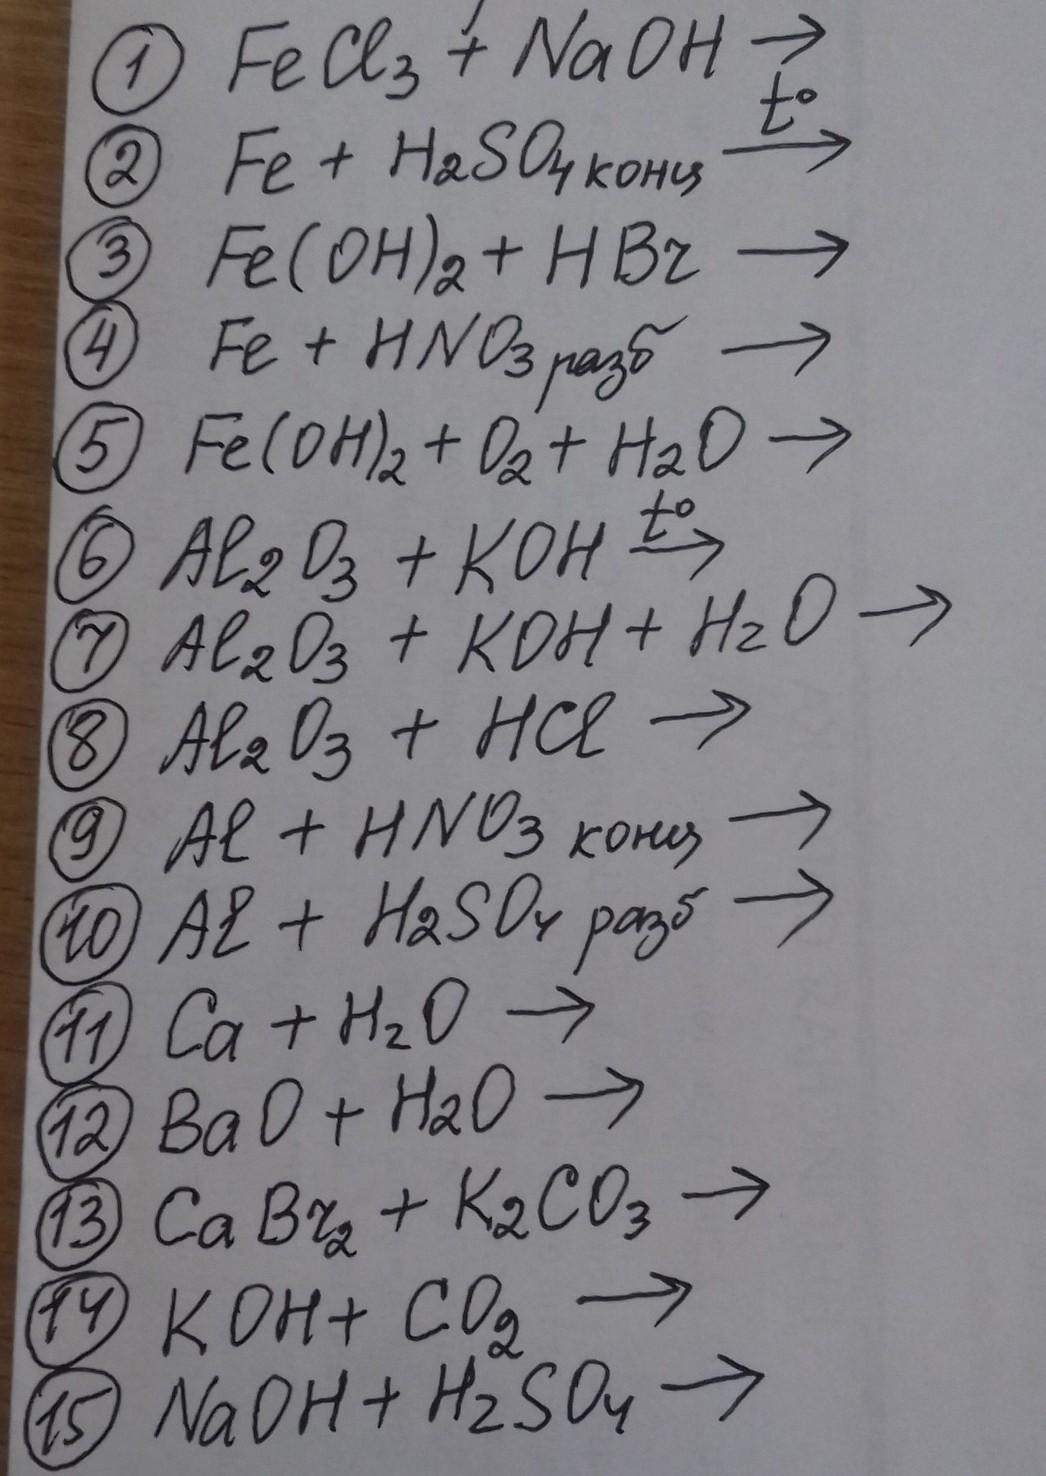 ① FeCl₃ + NaOH →
② Fe + H₂SO₄ конц t° →
③ Fe(OH)₂ + HBr →
④ Fe + HNO₃ разб →
⑤ Fe(OH)₂ + O₂ + H₂O →
⑥ Al₂O₃ + KOH t° →
⑦ Al₂O₃ + KOH + H₂O →
⑧ Al₂O₃ + HCl →
⑨ Al + HNO₃ конц →
⑩ Al + H₂SO₄ разб →
⑪ Ca + H₂O →
⑫ BaO + H₂O →
⑬ CaBr₂ + K₂CO₃ →
⑭ KOH + CO₂ →
⑮ NaOH + H₂SO₄ →